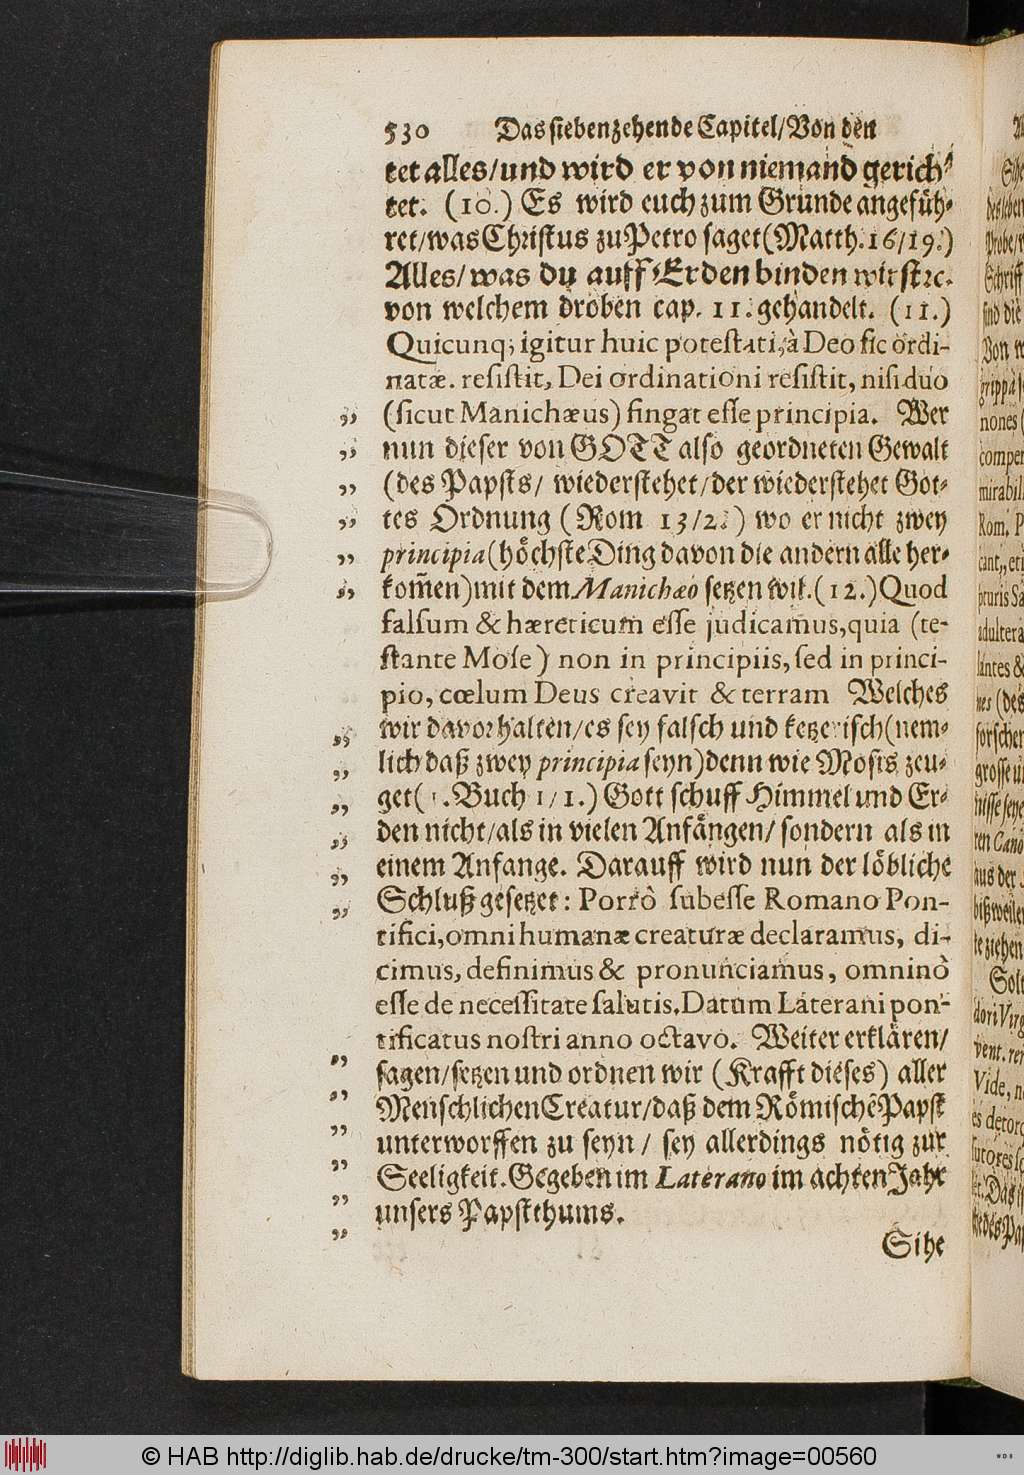 530 Das siebenzehende Capitel/Von den
tet alles/und wird er von niemand gerich-
tet. (10.) Es wird euch zum Grunde angefüh-
ret/was Christus zu Petro saget(Matth.16/19.)
Alles/was du auff Erden binden wirst ꝛc.
von welchem droben cap. 11. gehandelt. (11.)
Quicunq; igitur huic potestati, à Deo sic ordi-
natæ. resistit, Dei ordinationi resistit, nisi duo
(sicut Manichæus) fingat esse principia. Wer
nun dieser von GOTT also geordneten Gewalt
(des Papsts/ wiederstehet/der wiederstehet Got-
tes Ordnung (Rom 13/2.) wo er nicht zwey
principia(höchste Ding davon die andern alle her-
kom̃en)mit dem Manichæo setzen wil.(12.)Quod
falsum & hæreticum esse judicamus,quia (te-
stante Mose) non in principiis, sed in princi-
pio, cœlum Deus creavit & terram Welches
wir davor halten/es sey falsch und ketzerisch(nem-
lich daß zwey principia seyn)denn wie Mosis zeu-
get(1.Buch 1/1.) Gott schuff Himmel und Er-
den nicht/als in vielen Anfängen/ sondern als in
einem Anfange. Darauff wird nun der löbliche
Schluß gesetzet: Porrò subesse Romano Pon-
tifici,omni humanæ creaturæ declaramus, di-
cimus, definimus & pronunciamus, omninò
esse de necessitate salutis.Datum Laterani pon-
tificatus nostri anno octavo. Weiter erklären/
sagen/setzen und ordnen wir (Krafft dieses) aller
Menschlichen Creatur/daß dem Römischẽ Papst
unterworffen zu seyn/ sey allerdings nötig zur
Seeligkeit.Gegeben im Laterano im achten Jahr
unsers Papstthums.
Sihe
nones
compen
mirabil
Rom. P
adultera
lantes &
forschen
grosse
aus der
te ziehen
dori Virg
Vide, n
© HAB http://diglib.hab.de/drucke/tm-300/start.htm?image=00560